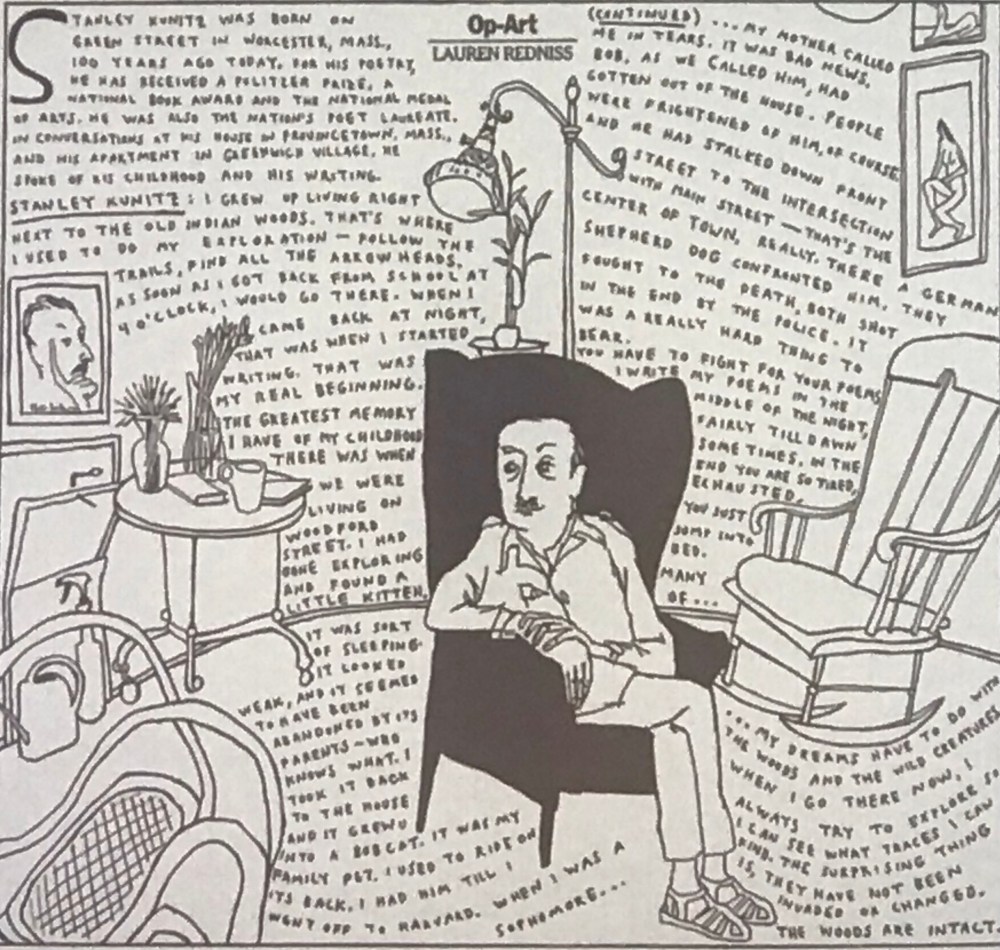 Op-Art
LAUREN REDNISS
STANLEY KUNITZ WAS BORN ON
GREEN STREET IN WORCESTER, MASS.,
100 YEARS AGO TODAY. FOR HIS POETRY,
HE HAS RECEIVED A PULITZER PRIZE, A
NATIONAL BOOK AWARD AND THE NATIONAL MEDAL
OF ARTS. HE WAS ALSO THE NATION'S POET LAUREATE.
IN CONVERSATIONS AT HIS HOUSE IN PROVINCETOWN, MASS.,
AND HIS APARTMENT IN GREENWICH VILLAGE, HE
SPOKE OF HIS CHILDHOOD AND HIS WRITING.
STANLEY KUNITZ: I GREW UP LIVING RIGHT
NEXT TO THE OLD INDIAN WOODS. THAT'S WHERE
I USED TO DO MY EXPLORATION — FOLLOW THE
TRAILS, FIND ALL THE ARROW HEADS.
AS SOON AS I GOT BACK FROM SCHOOL AT
4 O'CLOCK, I WOULD GO THERE. WHEN I
CAME BACK AT NIGHT,
THAT WAS WHEN I STARTED
WRITING. THAT WAS
MY REAL BEGINNING.
THE GREATEST MEMORY
I HAVE OF MY CHILDHOOD
THERE WAS WHEN
WE WERE
LIVING ON
WOODFORD
STREET. I HAD
GONE EXPLORING
AND FOUND A
LITTLE KITTEN.
IT WAS SORT
OF SLEEPING.
IT LOOKED
WEAK, AND IT SEEMED
TO HAVE BEEN
ABANDONED BY ITS
PARENTS — WHO
KNOWS WHAT. I
TOOK IT BACK
TO THE HOUSE
AND IT GREW
INTO A BOBCAT. IT WAS MY
FAMILY PET. I USED TO RIDE ON
ITS BACK. I HAD HIM TILL I
WENT OFF TO HARVARD. WHEN I WAS A
SOPHOMORE...
(CONTINUED) ...MY MOTHER CALLED
ME IN TEARS. IT WAS BAD NEWS.
BOB, AS WE CALLED HIM, HAD
GOTTEN OUT OF THE HOUSE. PEOPLE
WERE FRIGHTENED OF HIM, OF COURSE
AND HE HAD STALKED DOWN FRONT
STREET TO THE INTERSECTION
WITH MAIN STREET — THAT'S THE
CENTER OF TOWN, REALLY. THERE A GERMAN
SHEPHERD DOG CONFRONTED HIM. THEY
FOUGHT TO THE DEATH, BOTH SHOT
IN THE END BY THE POLICE. IT
WAS A REALLY HARD THING TO
BEAR.
YOU HAVE TO FIGHT FOR YOUR POEMS
I WRITE MY POEMS IN THE
MIDDLE OF THE NIGHT,
FAIRLY TILL DAWN
SOME TIMES. IN THE
END YOU ARE SO TIRED,
EXHAUSTED,
YOU JUST
JUMP INTO
BED.
MANY
OF...
...MY DREAMS HAVE TO DO WITH
THE WOODS AND THE WILD CREATURES
WHEN I GO THERE NOW, I
ALWAYS TRY TO EXPLORE SO
I CAN SEE WHAT TRACES I CAN
FIND. THE SURPRISING THING
IS, THEY HAVE NOT BEEN
INVADED OR CHANGED.
THE WOODS ARE INTACT.